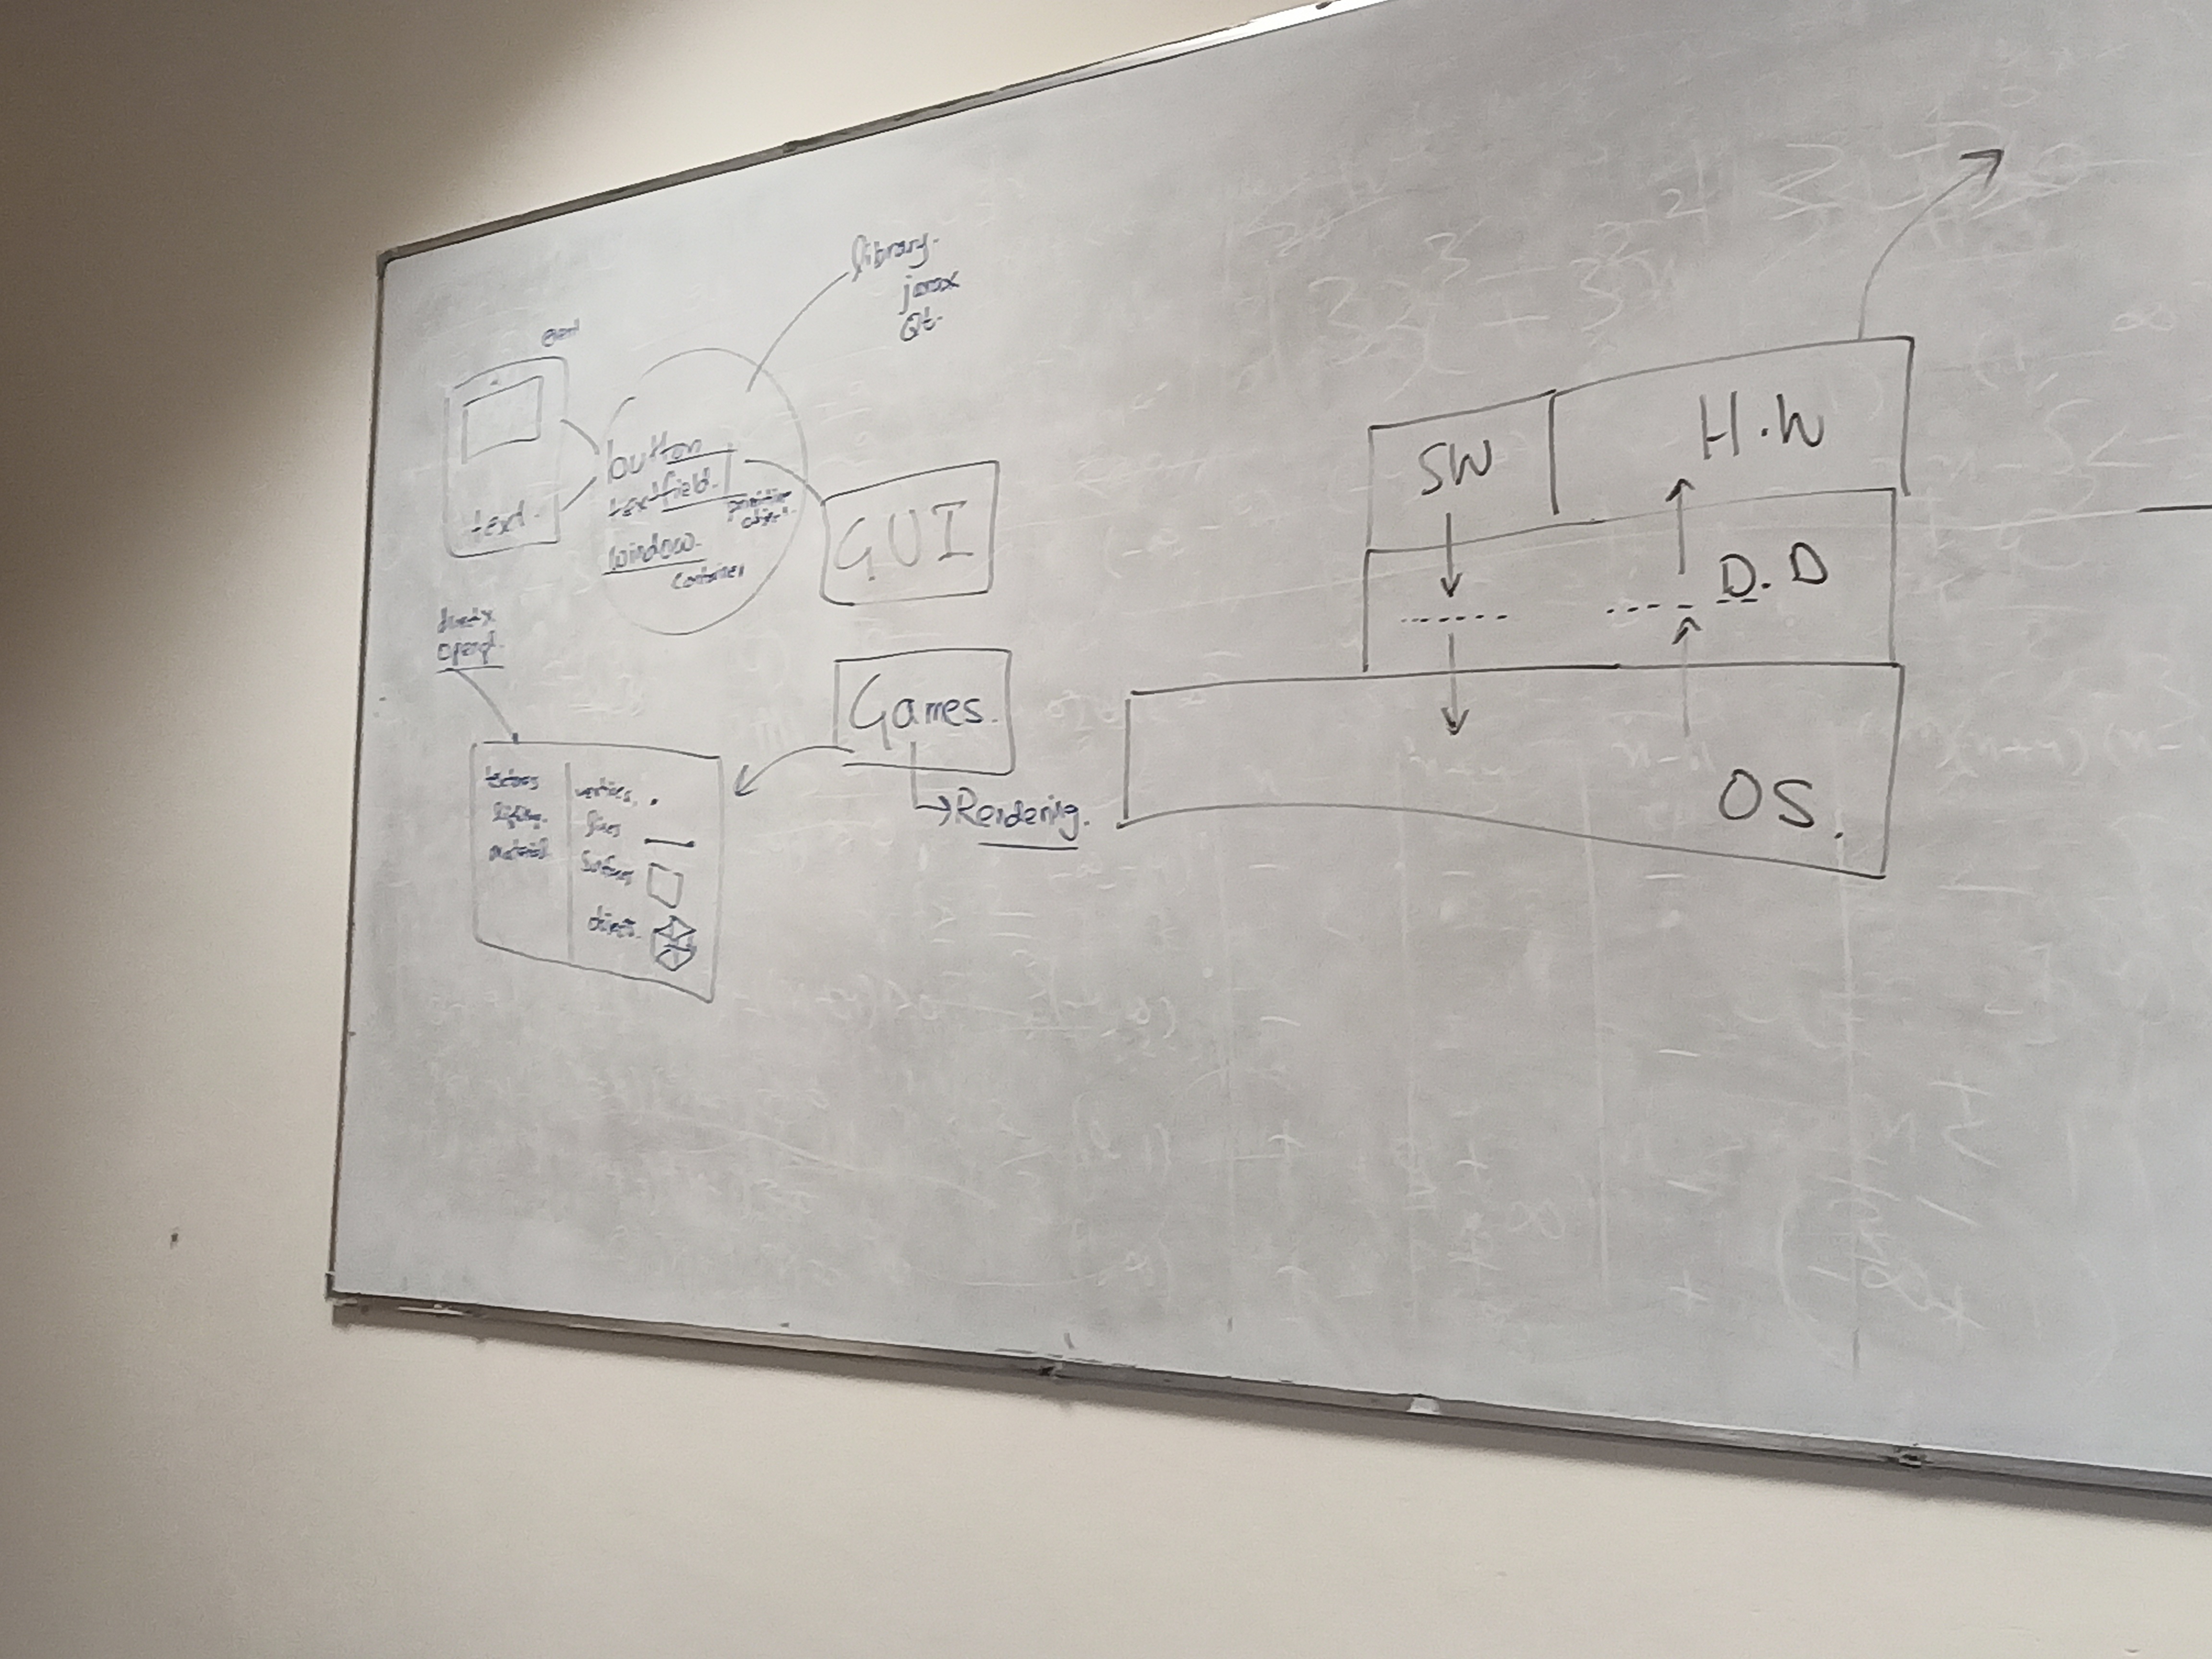 library.
javax
Qt.
button
textfield.
primitive
object.
window.
container
text.
GUI
directx
opengl.
Games.
Rendering.
textures
lighting.
material.
vertices.
lines
Surfaces
objects.
SW
H.W
D.D
OS.